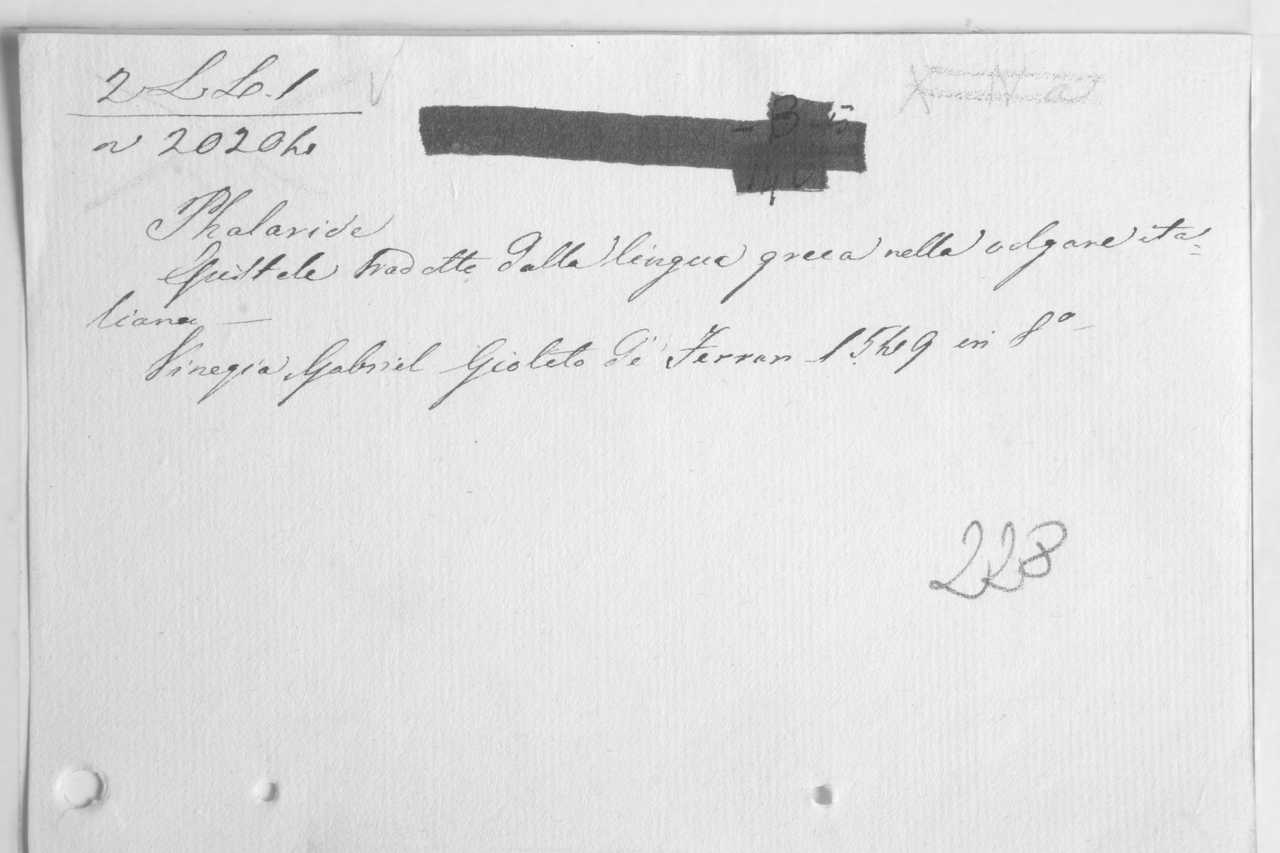 2 L L. 1
Phalaride
Epistole tradotte dalla lingua greca nella volgare ita=
liana —
Vinegia, Gabriel Gioleto de Ferrar 1549 in 8°
228